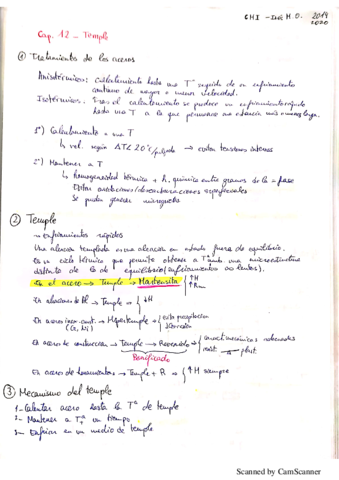 2019
2020
Cap. 12 - Temple
① Tratamientos de los aceros
Anisotérmicos: Calentamiento hasta una Tª seguido de un enfriamiento
continuo de mayor o menor velocidad.
Isotérmicos. Tras el calentamiento se produce un enfriamiento rápido
hasta una T a la que permanece una estancia más o menos larga.
1º) Calentamiento a una T
↳ vel. según → evitar tensiones internas
2º) Mantener a T
↳ homogeneidad térmica + h. química entre granos de la = fase
Evitar oxidaciones/descarburaciones superficiales
Se puede generar
② Temple
→ enfriamientos rápidos
Una aleación templada es una aleación en estado fuera de equilibrio.
Es un ciclo térmico que permite obtener a Tª amb una microestructura
distinta de la de equilibrio (enfriamientos + lentos).
En el acero → Temple → Martensita → ↑H
↑Rm
En aleaciones de Al → Temple → ↓H
En aceros inox aust. → Hipertemple → evita precipitación
corrosión
En aceros de construcción → Temple → Revenido → caract mecánicas
resist. plast.
Bonificado
En aceros de herramientas → Temple + R → ↑H siempre
③ Mecanismo del temple
1- Calentar acero hasta la Tª de temple
2- Mantener a Tª un tiempo
3- Enfriar en un medio de temple
Scanned by CamScanner